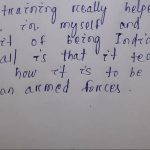 training really helpe
in myself and
it of being Indic
all is that it tec
how it is to be
an armed forces.